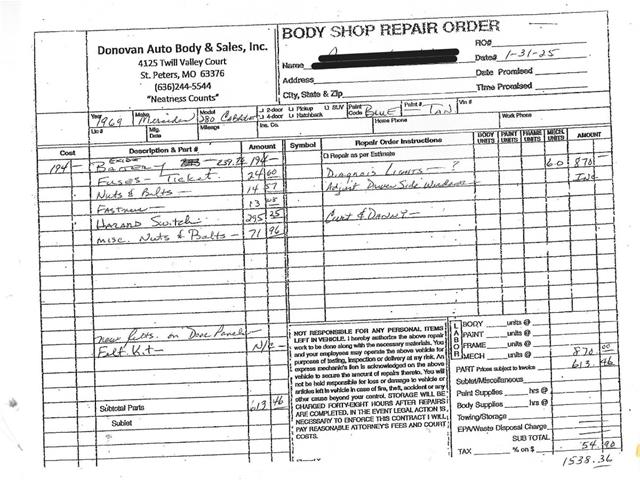 BODY SHOP REPAIR ORDER
Donovan Auto Body & Sales, Inc.
4125 Twill Valley Court
St. Peters, MO 63376
(636)244-5544
"Neatness Counts"
RO#
Name
Date# 1-31-25
Address
Date Promised
City, State & Zip
Time Promised
Year 1969 Make Mercedes Model 280 Cabriolet 2-door Pickup SUV 4-door Hatchback Paint Code BLUE Paint# TAN Vin #
Lic # Mfg. Date Mileage Ins. Co. Home Phone Work Phone
Cost Description & Part # Amount Symbol Repair Order Instructions BODY UNITS PAINT UNITS FRAME UNITS MECH. UNITS AMOUNT
Repair as per Estimate 6.0 870
194- EXIDE BATTERY 194-
FUSES - TICKET 24 60
DIAGNOIS LIGHTS - ? INC
NUTS & BOLTS - 14 57
ADJUST DRIVER SIDE WINDOWS
FASTNERS - 13
HAZARD SWITCH - 295 25
CURT & DANNY -
MISC. NUTS & BOLTS - 71 96
NEW FELTS ON DOOR PANELS
FELT KIT - N/C
NOT RESPONSIBLE FOR ANY PERSONAL ITEMS
LEFT IN VEHICLE. I hereby authorize the above repair
work to be done along with the necessary materials. You
and your employees may operate the above vehicle for
purposes of testing, inspection or delivery at my risk. An
express mechanic's lien is acknowledged on the above
vehicle to secure the amount of repairs thereto. You will
not be held responsible for loss or damage to vehicle or
articles left in vehicle in case of fire, theft, accident or any
other cause beyond your control. STORAGE WILL BE
CHARGED FORTY-EIGHT HOURS AFTER REPAIRS
ARE COMPLETED. IN THE EVENT LEGAL ACTION IS
NECESSARY TO ENFORCE THIS CONTRACT I WILL
PAY REASONABLE ATTORNEY'S FEES AND COURT
COSTS.
LABOR
BODY units @
PAINT units @
FRAME units @
MECH units @ 870 00
PART Prices subject to invoice 613 46
Sublet/Miscellaneous
Paint Supplies hrs @
Body Supplies hrs @
Towing/Storage
EPA/Waste Disposal Charge
SUB TOTAL
TAX % on $ 54.90
1538.36
Subtotal Parts 613 46
Sublet